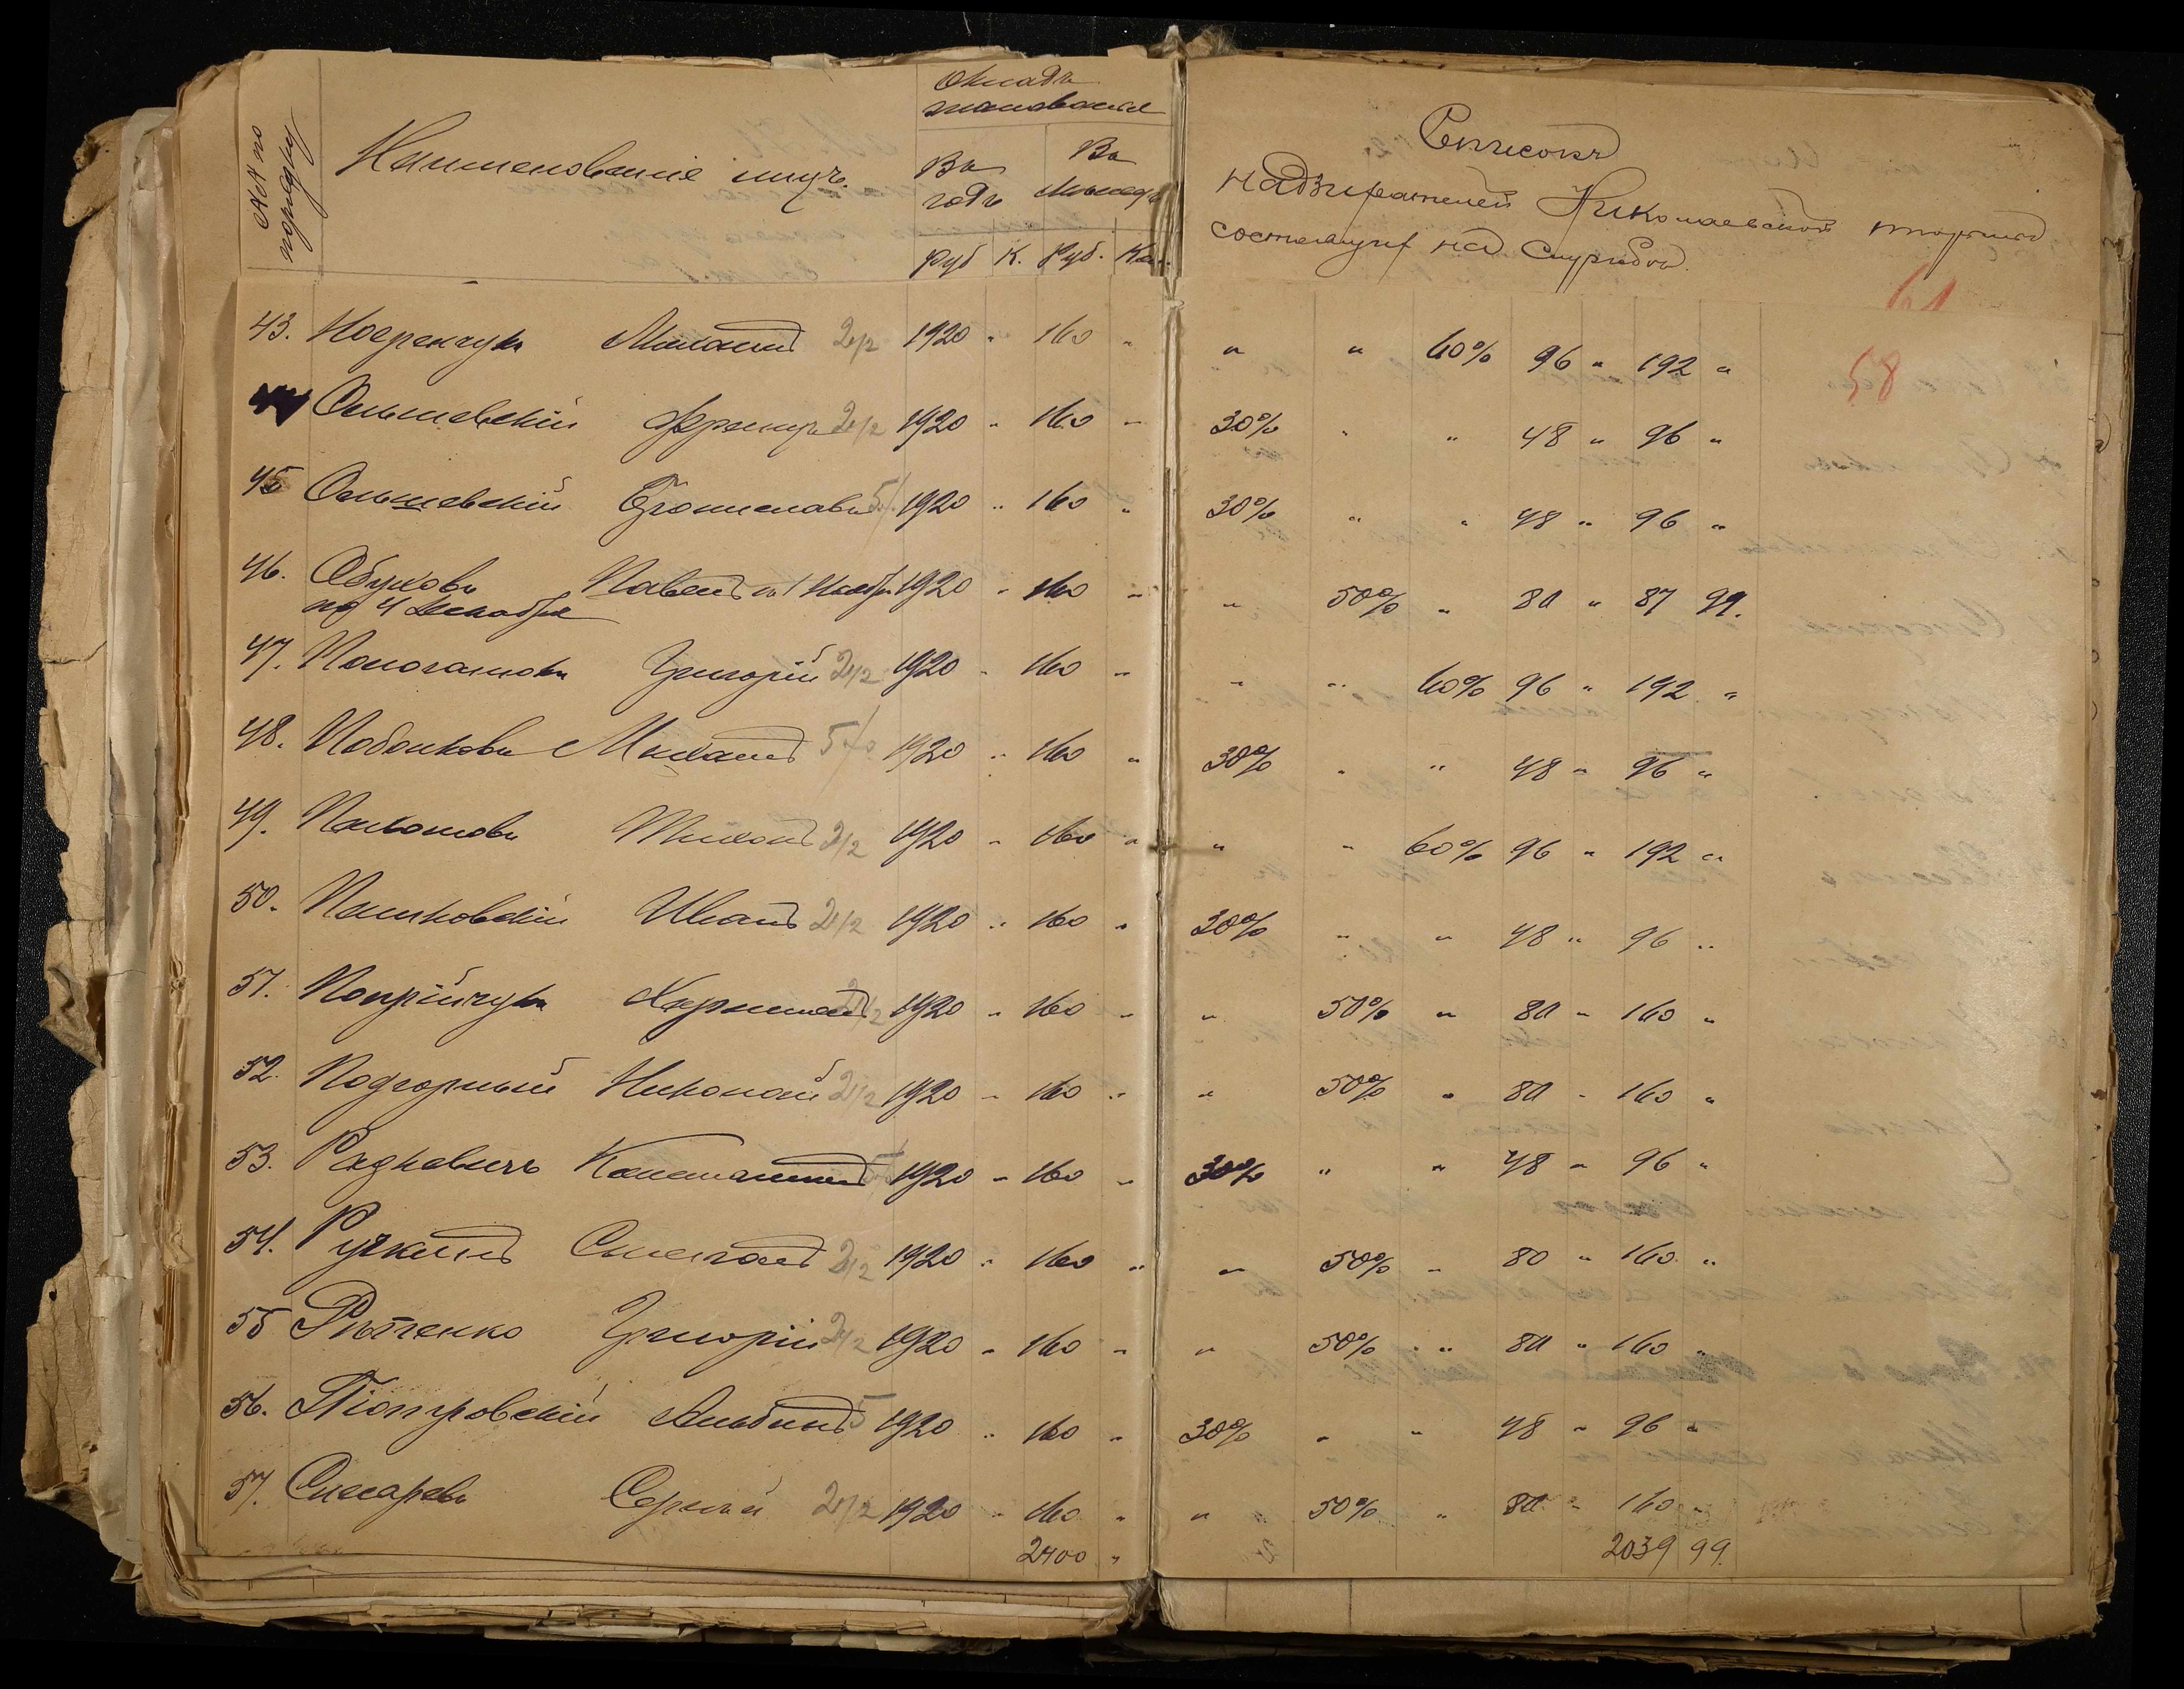 №№ по порядку
Наименованіе лицъ.
Окладъ жалованья
Въ годъ
Въ мѣсяцъ
Руб К. Руб. Коп.
Списокъ
надзирателей Николаевской тюрьмы
состоящих на службѣ.
61
58
43. Ногренчукъ Михаилъ 2½ 1920 " 160 " " " 60% 96 " 192 "
44 Ольшевскій Францъ 2½ 1920 " 160 " 30% " " 48 " 96 "
45 Ольшевскій Брониславъ 5% 1920 " 160 " 30% " " 48 " 96 "
46. Обуховъ Павелъ съ 1 Ноября 1920 " 160 " " 50% " 80 " 87 99.
по 4 Декабря
47. Пологамовъ Григорій 2½ 1920 " 160 " " " 60% 96 " 192 "
48. Победковъ Михаилъ 5% 1920 " 160 " 30% " " 48 " 96 "
49. Пахомовъ Тихонъ 2½ 1920 " 160 " " " 60% 96 " 192 "
50. Пашковскій Иванъ 2½ 1920 " 160 " 30% " " 48 " 96 "
51. Попрійчукъ Харитонъ 2½ 1920 " 160 " " 50% " 80 " 160 "
52. Подгорный Николай 2½ 1920 " 160 " " 50% " 80 " 160 "
53. Радкевичъ Константинъ 5% 1920 " 160 " 30% " " 48 " 96 "
54. Ручкинъ Степанъ 2½ 1920 " 160 " " 50% " 80 " 160 "
55 Рѣпенко Григорій 2½ 1920 " 160 " " 50% " 80 " 160 "
56. Піотровскій Альбинъ 5 1920 " 160 " 30% " " 48 " 96 "
57. Слесаревъ Сергѣй 2½ 1920 " 160 " " 50% " 80 " 160 "
2400 " 2039 99.